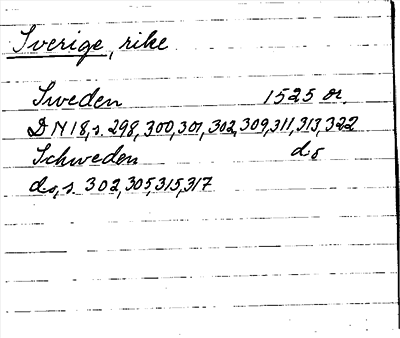 Sverige, rike
Sweden 1525 or.
DN 18, s. 298, 300, 301, 302, 309, 311, 313, 322
Schweden do
do, s. 302, 305, 315, 317